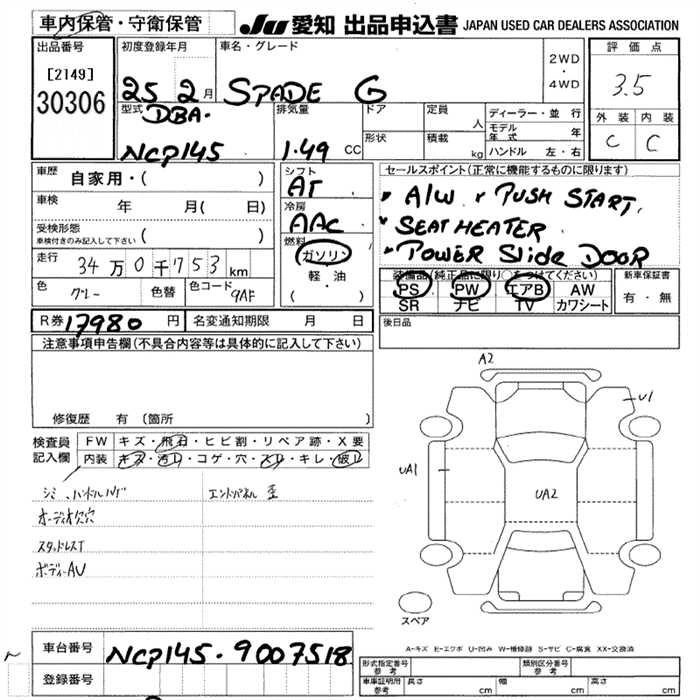 車内保管・守衛保管
JU 愛知 出品申込書 JAPAN USED CAR DEALERS ASSOCIATION
出品番号
[2149]
30306
初度登録年月
25 2月
車名・グレード
SPADE G
2WD
・
4WD
評価点
3.5
外装 内装
C C
型式
DBA-
NCP145
排気量
1.49 CC
ドア
形状
定員
人
積載
kg
ディーラー・並行
モデル年式 年
ハンドル 左・右
車歴 自家用・( )
車検 年 月( 日)
受検形態
車検付きのみ記入して下さい ( )
走行 34万0千753km
色 グレー 色替 色コード 9AF
シフト
AT
冷房
AAC
燃料
ガソリン
軽・油
( )
セールスポイント(正常に機能するものに限ります)
A/W PUSH START
SEAT HEATER
POWER Slide DOOR
装備品(純正品に限り○をつけてください)
PS PW エアB AW
SR ナビ TV カワシート
新車保証書
有・無
R券 17980円 名変通知期限 月 日
後日品
注意事項申告欄(不具合内容等は具体的に記入して下さい)
修復歴 有(箇所 )
検査員記入欄
FW キズ・飛石・ヒビ割・リペア跡・X要
内装 キズ・汚レ・コゲ・穴・スレ・キレ・破レ
シミ、ハンドルハゲ エンドパネル歪
オーディオ欠穴
スタッドレスT
ボディーAU
A2
U1
UA1
UA2
スペア
A-キズ E-エクボ U-凹み W-補修跡 S-サビ C-腐食 XX-交換済
車台番号 NCP145-9007518
登録番号
型式指定番号 参考 類別区分番号 参考
車庫証明所 参考 長さ cm 幅 cm 高さ cm